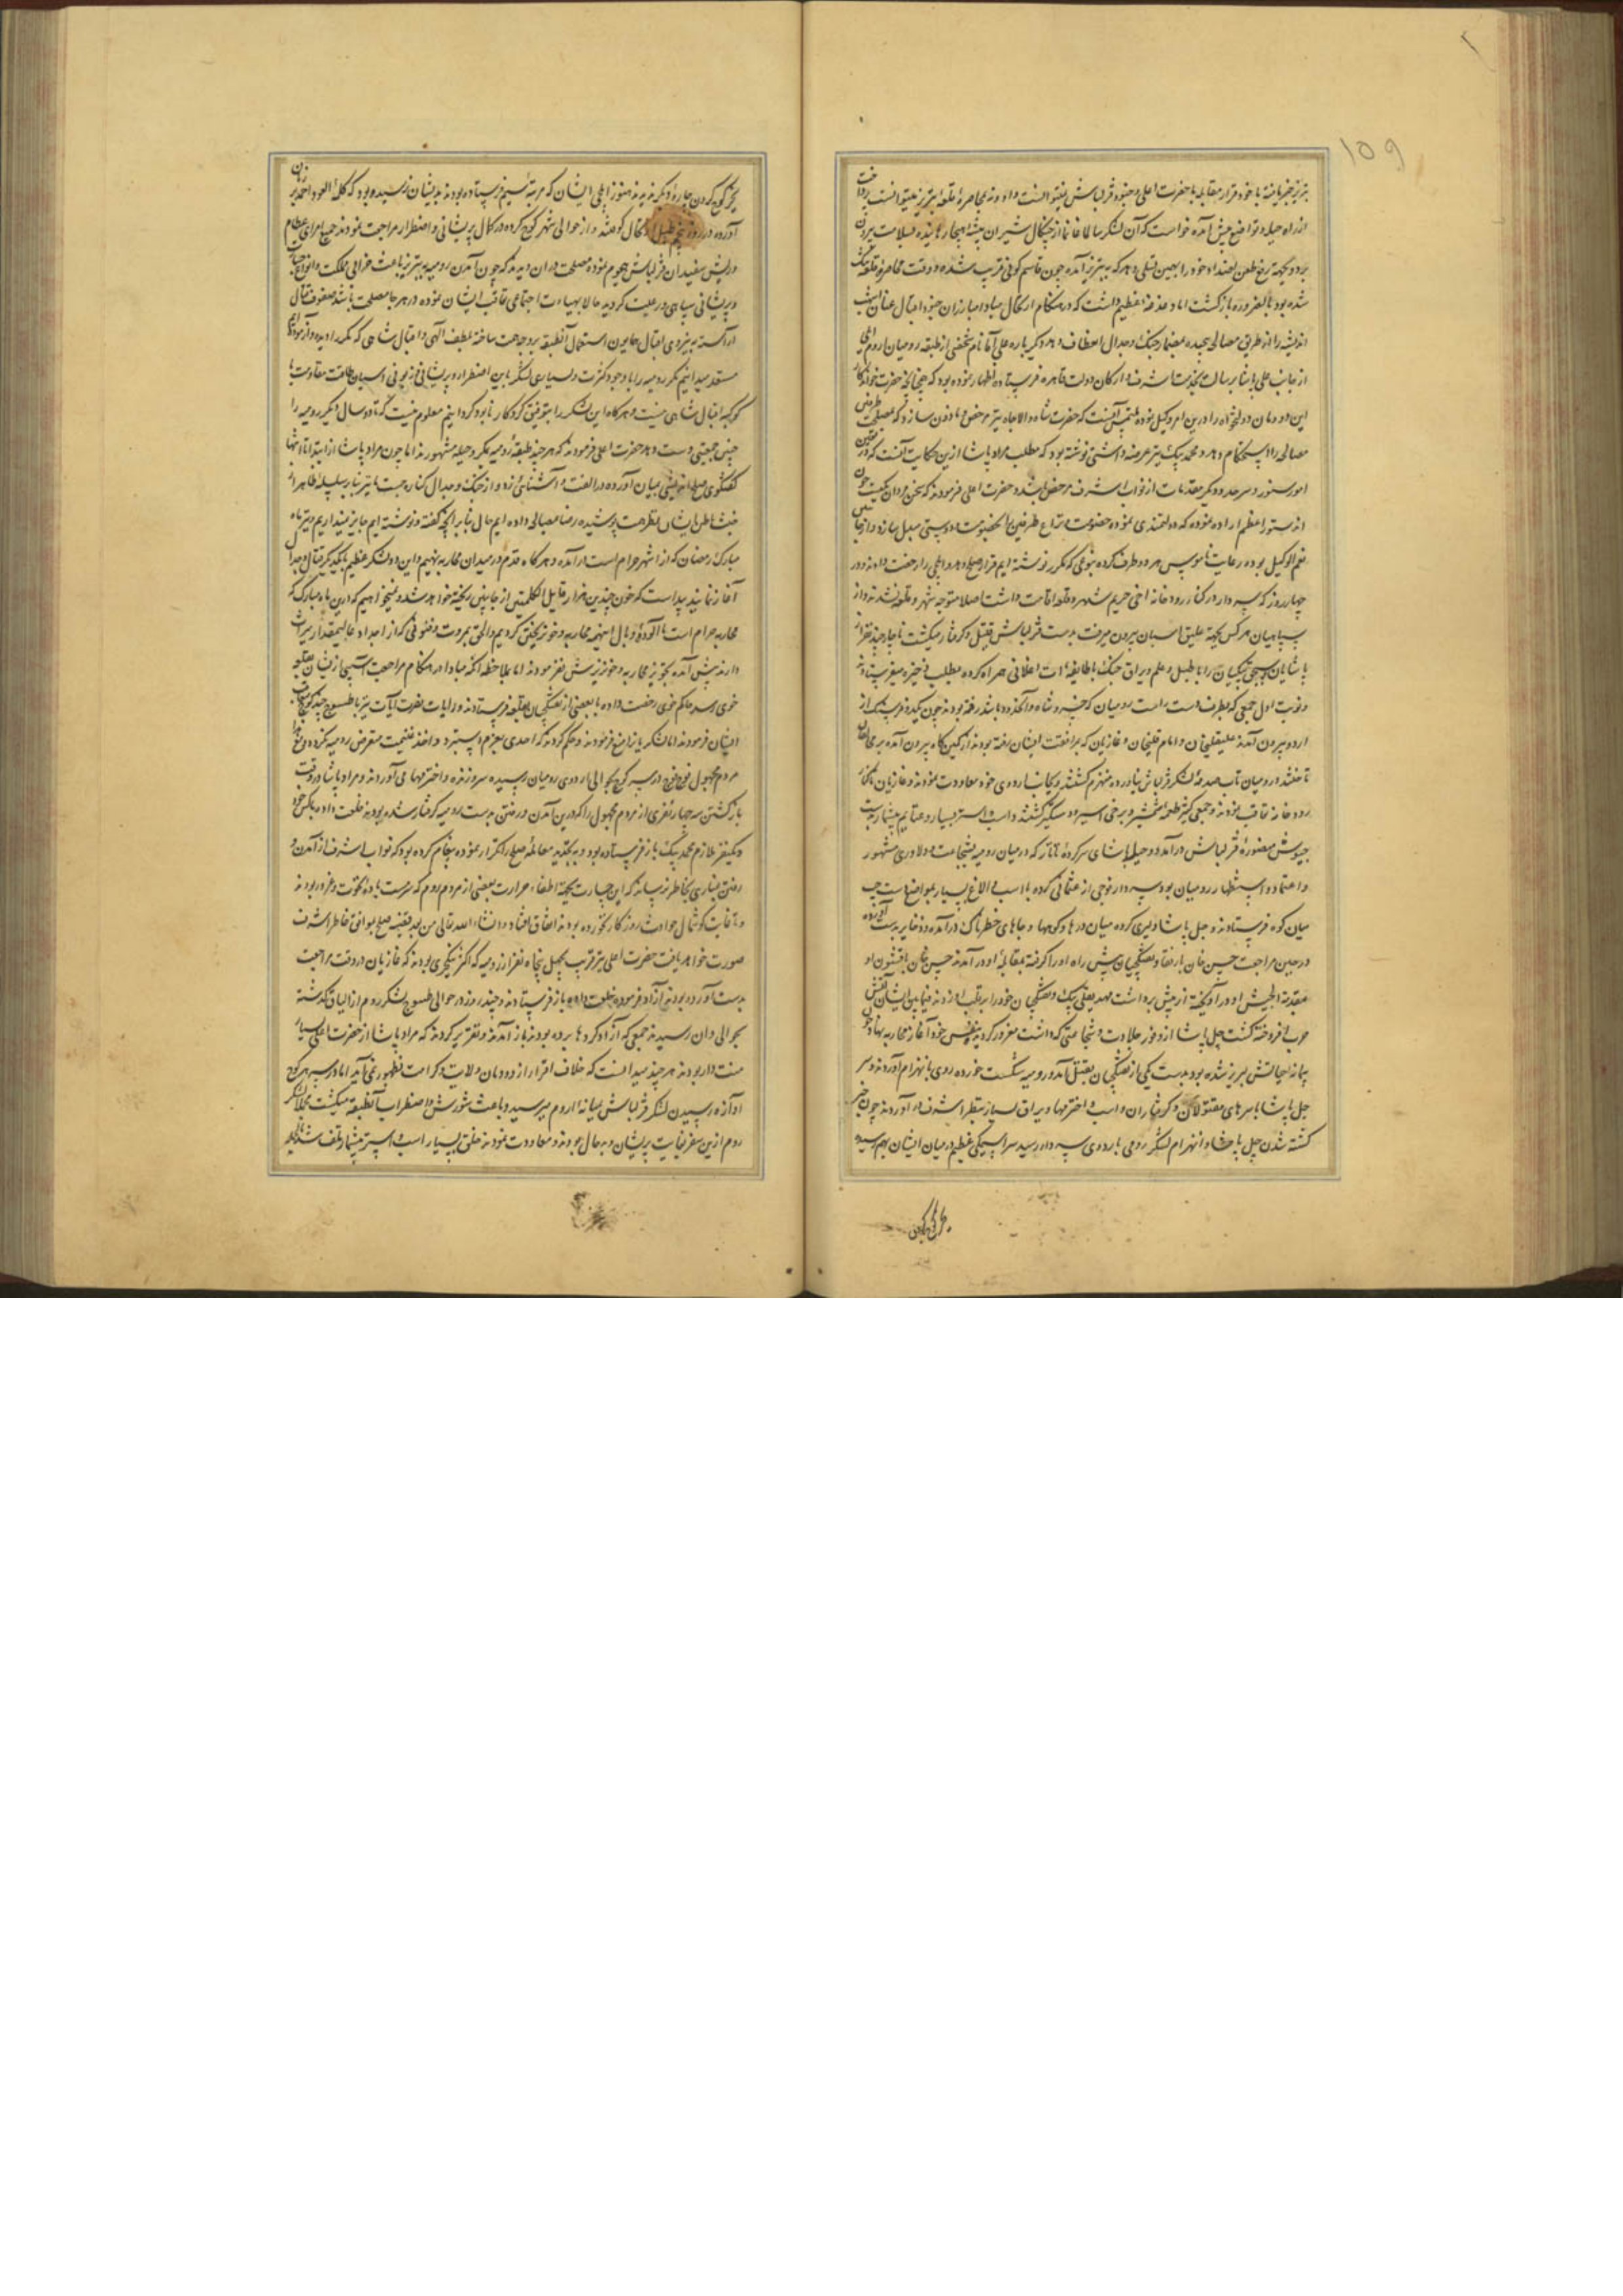 ۱۵۹
تبریز خبر یافته با خود قرار مقابله با حضرت اعلی و جنود قزلباش نمیتوانست داد و نه بمحاصرهٔ قلعهٔ تبریز میتوانست پرداخت
از راه حیله و تواضع پیش آمده خواست که آن لشکر سالما غانما از چنگال شیران بیشهٔ هیجا رهانیده بسلامت بیرون
برد و بجهة رفع طعن اعدا خود را بهمین تسلی دهد که به تبریز آمده چون قاسم کوفی قریب شده و وقت محاصرهٔ قلعه تنگ
شده بود بالضرورة بازگشت اما دغدغهٔ عظیم داشت که در هنگام ارتحال مبادا مبارزان جنود اقبال عنان
اندیشه را از طریق مصالحه پیچیده بمضمار جنگ و جدال انعطاف دهد دیگر باره علی آقا نام شخصی از طبقه رومیان
از جانب علی پاشا برسالت بخدمت اشرف و ارکان دولت قاهره فرستاده اظهار نموده بود که چنانچه حضرت خواندگار
این دودمان دولتخواه را درین امر وکیل نموده ملتمس آنست که حضرت شاه والاجاه نیز مرخص و ماذون سازد که
مصالحه را استحکام دهد و محمد بیک نیز عرضه داشتی نوشته بود که مطلب مراد پاشا ازین حکایت آنست که در
امور سنور و سرحد و دیگر مقدمات از نواب اشرف مرخص باشد و حضرت اعلی فرمودند که سخن مردان یکیست چون
آن دستور اعظم اراده نموده که دولتمندی نموده خصومت و نزاع طرفین بخصوصیت و دوستی مبدل سازد
نعم الوکیل بوده رعایت ناموس هر دو طرف کرده بنوعی که مکرر نوشته ایم قرار صلح دهد و ایلچی را رخصت دادند و در
چهار روز که سردار در کنار رودخانه اجی حریم شهر و قلعه اقامت داشت اصلا متوجه شهر و قلعه نشدند و از
سپاهیان هر کس بجهة علیق اسبان بیرون میرفت بدست قزلباش قتیل و گرفتار میگشت ناچار چند نفر از
پاشایان را با طبل و علم و یراق جنگ با طایفهٔ همراه کرده بطلب ذخیره میفرستاد
و نوبت اول جمعی که بطرف دست راست رومیان که خسرو شاه و آنحدود باشد رفته بودند چون یکدو فرسنگ از
اردو بیرون آمدند علیقلیخان و امام قلیخان و غازیان که بمرافقت ایشان رفته بودند از کمین گاه بیرون آمده بر مخالفان
تاختند و رومیان تاب صدمهٔ لشکر قزلباش نیاورده منهزم گشتند و بجانب اردوی خود معاودت نمودند و غازیان تا کنار
رودخانه تعاقب نمودند و جمعی کثیر طعمهٔ شمشیر و برخی اسیر و دستگیر گشتند و اسب و استر بسیار و غنایم بیشمار بدست
جیوش منصورهٔ قزلباش درآمد و جبل پاشای سرکردهٔ تاتار که در میان رومیه بشجاعت و دلاوری مشهور
و اعتماد و استظهار رومیان بود سردار فوجی از عثمانی کرده با اسب و الاغ بسیار بمواضع دست چپ
میان کوه فرستادند و جبل پاشا دلیری کرده میان درها و کوهها و جاهای خطرناک درآمده ذخایر بدست آورده
در حین مراجعت حسن خان با رفقا و تفنگچیان پیش راه او را گرفته بمقابله او درآمدند حسن خان با قشون او
مقدمة الجیش او درآویخته از پیش برداشت مهدیقلی بیک و تفنگچیان خود را برقلب او زدند فیمابین ایشان آتش
حرب افروخته گشت جبل پاشا از وفور جلادت و شجاعتی که داشت مغرور گردیده بنفس خود آغاز محاربه نهاد
پیمانه حیاتش لبریز شده بود بدست یکی از تفنگچیان بقتل آمد و رومیه شکست خورده روی بانهزام آوردند و سر
جبل پاشا با سرهای مقتولان و گرفتاران و اسب و اخترمها و یراق بسیار بنظر اشرف درآوردند چون خبر
کشته شدن جبل پاشا و انهزام لشکر رومی باردوی سردار رسید سراسیمگی عظیم در میان ایشان بهم رسیده
بجز کوچ کردن چاره دیگر ندیدند هنوز ایلچی ایشان که مرتبهٔ سیم فرستاده بودند بدیشان نرسیده بود که کلمهٔ العود احمد بر زبان
آورده در روز پنجم طبل ارتحال کوفتند و از حوالی شهر کوچ کرده در کمال پریشانی و اضطرار مراجعت نمودند جمیع امرای عظام
و ریش سفیدان قزلباش هجوم نموده مصلحت در آن دیدند که چون آمدن رومیه به تبریز باعث خرابی مملکت و انواع خسارت
و پریشانی سپاهی و رعیت گردید حالا بهیأت اجتماعی تعاقب ایشان نموده در هر جا مصلحت باشد صفوف قتال
آراسته به نیروی اقبال همایون استیصال آنطبقه وجهه همت ساخته بلطف الهی و اقبال شاهی که مکرر دیده و آزموده ایم
مستعد میدانیم که رومیه را با وجود کثرت و بسیاری لشکر باین اضطرار و پریشانی و زبونی اسبان طاقت مقاومت با
کوکبه اقبال شاهی نیست و هرگاه این لشکر را بتوفیق کردگار نابود کردانیم معلوم نیست که تا ده سال دیگر رومیه را
چنین جمعیتی دست دهد حضرت اعلی فرمودند که هر چند طبقهٔ رومیه بمکر و حیله مشهورند اما چون مراد پاشا از ابتدا تا انتها
گفتگوی صلح اندیشی بمیان آورده در الفت و آشنائی زده و از جنگ و جدال کناره جست ما نیز بنابر سلسلهٔ ظاهر از
خبث باطن ایشان نظر همت پوشیده رضا بمصالحه داده ایم حال بنابر آنچه گفته و نوشته ایم جایز نمیداریم که در ماه
مبارک رمضان که از اشهر حرام است درآمده و هرگاه قدم در میدان محاربه نهیم و این دو لشکر عظیم با یکدیگر قتال و جدال
آغاز نمایند پیداست که خون چندین هزار قایل الکلمتین از جانبین ریخته خواهد شد و نمیخواهیم که درین ماه مبارک که
محاربه حرام است آلودهٔ وبال اینهمه محاربه و خونریختن گردیم و الحق بمروت و فتوتی که از اجداد عالیمقدار میراث
دارند پیش آمده بتجویز محاربه و خونریزش نفرمودند اما بملاحظهٔ آنکه مبادا در هنگام مراجعت آسیبی از ایشان بقلعه
خوی رسد حاکم خوی رخصت داده با بعضی از تفنگچیان بقلعه فرستادند و رایات نصرت آیات نیز تا طسوج چند کوچ بتعاقب
ایشان فرمودند اما لشکریان را منع فرمودند و حکم کردند که احدی بعزم دستبرد و اخذ غنیمت متعرض رومیه نگردد
مردم مجهول فوج فوج در سر کوچ بحوالی اردوی رومیان رسیده سر و زنده و اخترمها می آوردند و مراد پاشا در وقت
بازگشتن سه چهار نفری از مردم مجهول را که درین آمدن و رفتن بدست رومیه گرفتار شده بودند خلعت داده با یکی
و یکنفر ملازم محمد بیک باز فرستاده بود و به تجدید معامله صلح را تکرار نموده پیغام کرده بود که نواب اشرف از آمدن و
رفتن غباری بخاطر نرسانند که این جسارت بجهة اطفاء حرارت بعضی از مردم روم که سرمست بادهٔ نخوت و غرور بودند
و تا غایت گوشمال حوادث روزگار نخورده بودند اتفاق افتاد و انشاء الله تعالی من بعد قضیه صلح بوافق خاطر اشرف
صورت خواهد یافت حضرت اعلی نیز قریب بچهل پنجاه نفر از رومیه که اکثر ینکچری بودند که غازیان در وقت مراجعت
بدست آورده بودند آزاد فرموده خلعت داده باز فرستادند و چند روز در حوالی طسوج لشکر روم از الباق گذشته
بحوالی وان رسیدند جمعی که آزاد کردها برده بودند باز آمدند و تقریر کردند که مراد پاشا از حضرت اعلی بسیار
منت دار بودند هر چند میدانست که خلاف اقرار از دودمان ولایت و کرامت بظهور نمی آید اما در سر هر کوچ
آوازه رسیدن لشکر قزلباش بمیانه اردوم میرسید و باعث شورش و اضطراب آنطبقه میگشت مجملا لشکر
روم ازین سفر بغایت پریشان و بدحال بودند و معاودت نمودند خلقی بسیار اسب و استر بیشمار تلف شد
بجز کوچ کردن